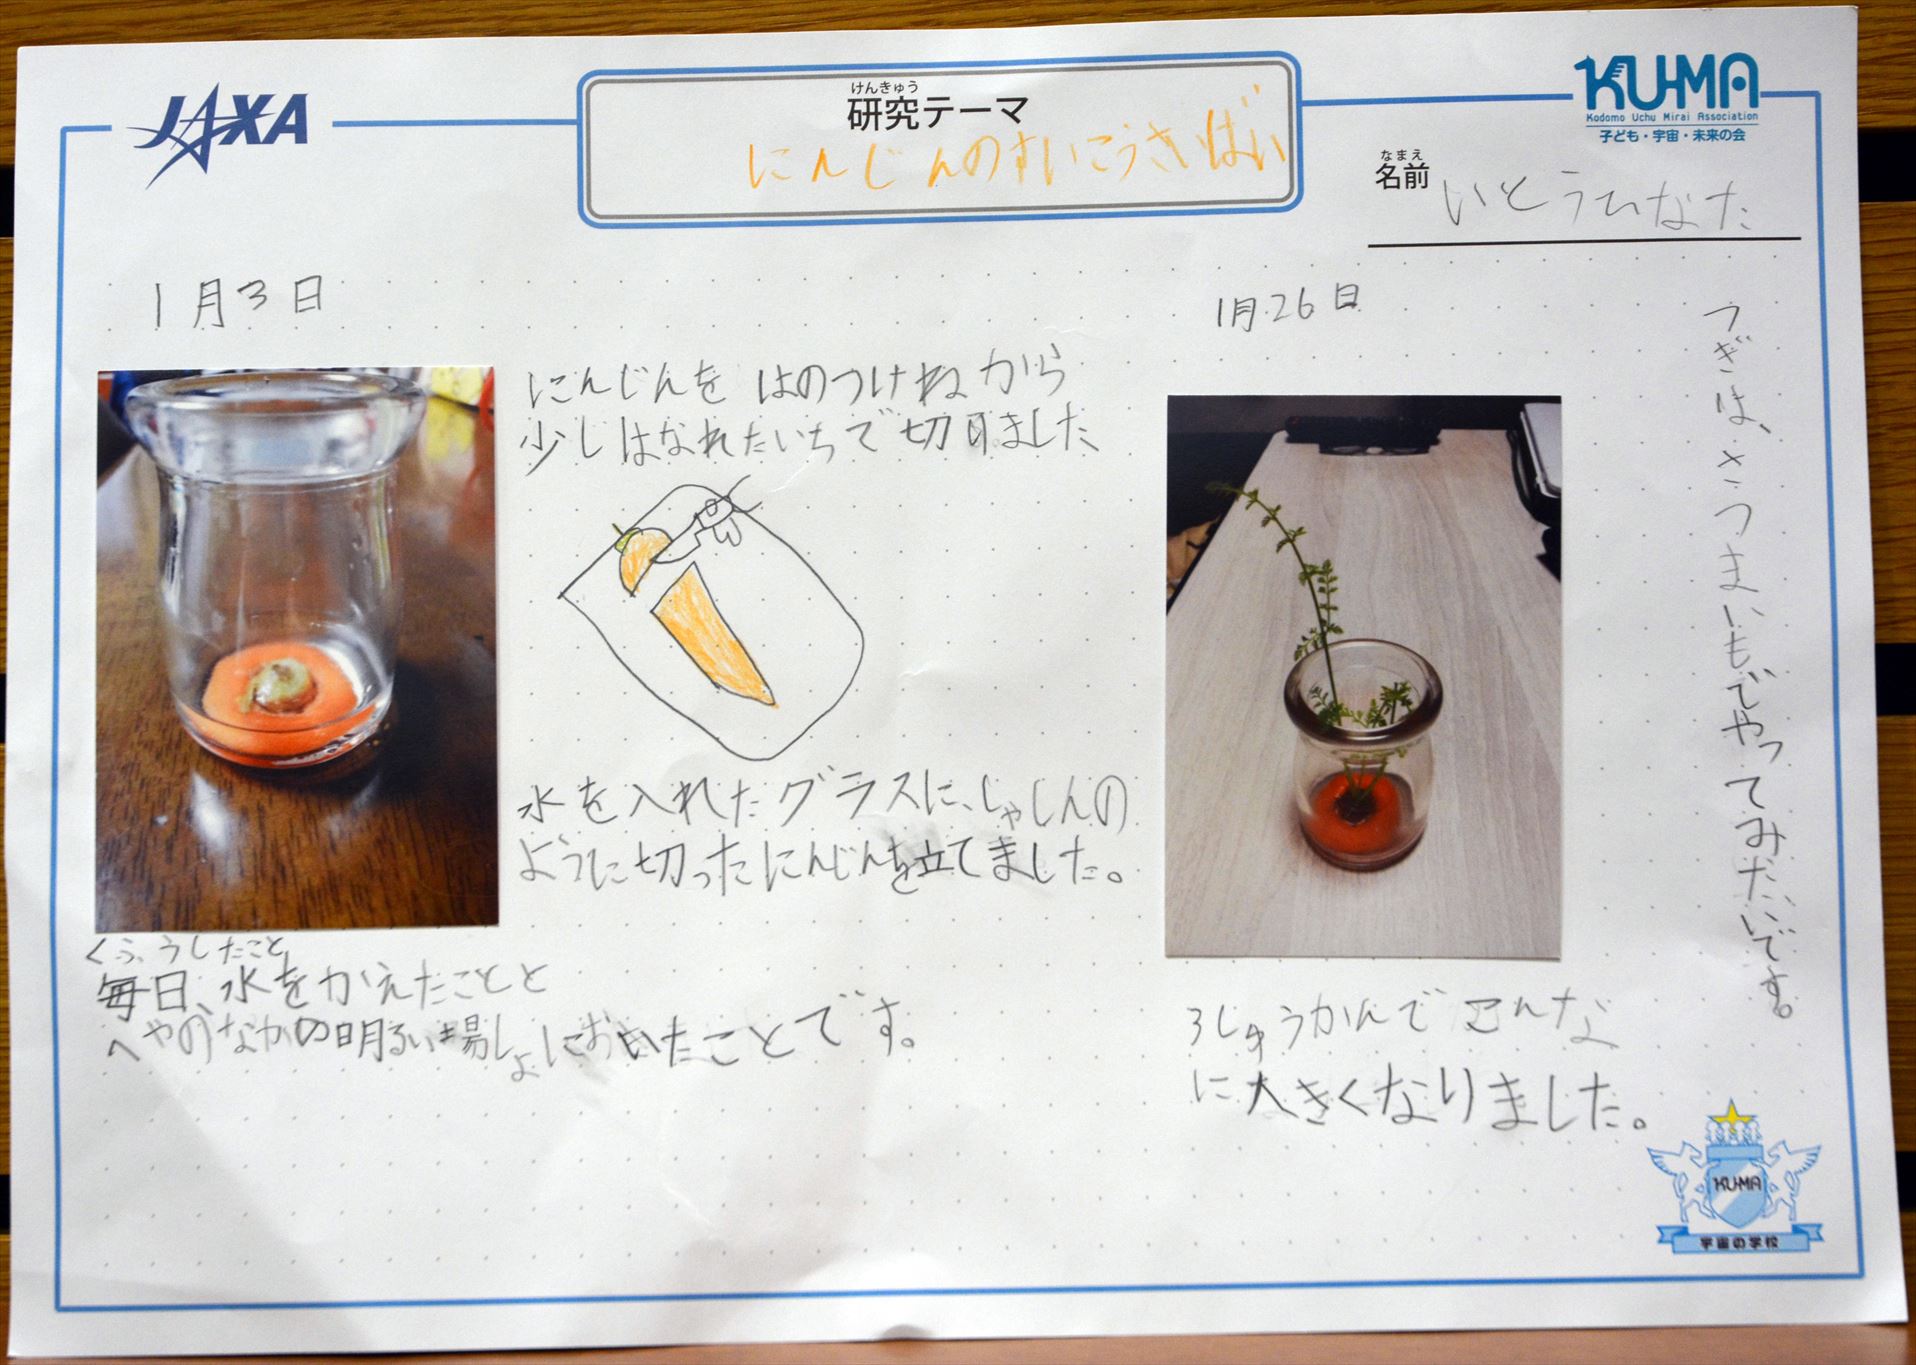 JAXA
けんきゅう
研究テーマ
にんじんのすいこうさいばい
KU-MA
Kodomo Uchu Mirai Association
子ども・宇宙・未来の会
なまえ
名前
いとうひなた
1月3日
にんじんを はのつけねから
少しはなれたいちで切りました
水を入れたグラスに、しゃしんの
ように切ったにんじんを立てました。
くふうしたこと
毎日、水をかえたことと
へやのなかの明るい場しょにおいたことです。
1月26日
3しゅうかんでこんな
に大きくなりました。
つぎは、さつまいもでやってみたいです。
KU-MA
宇宙の学校